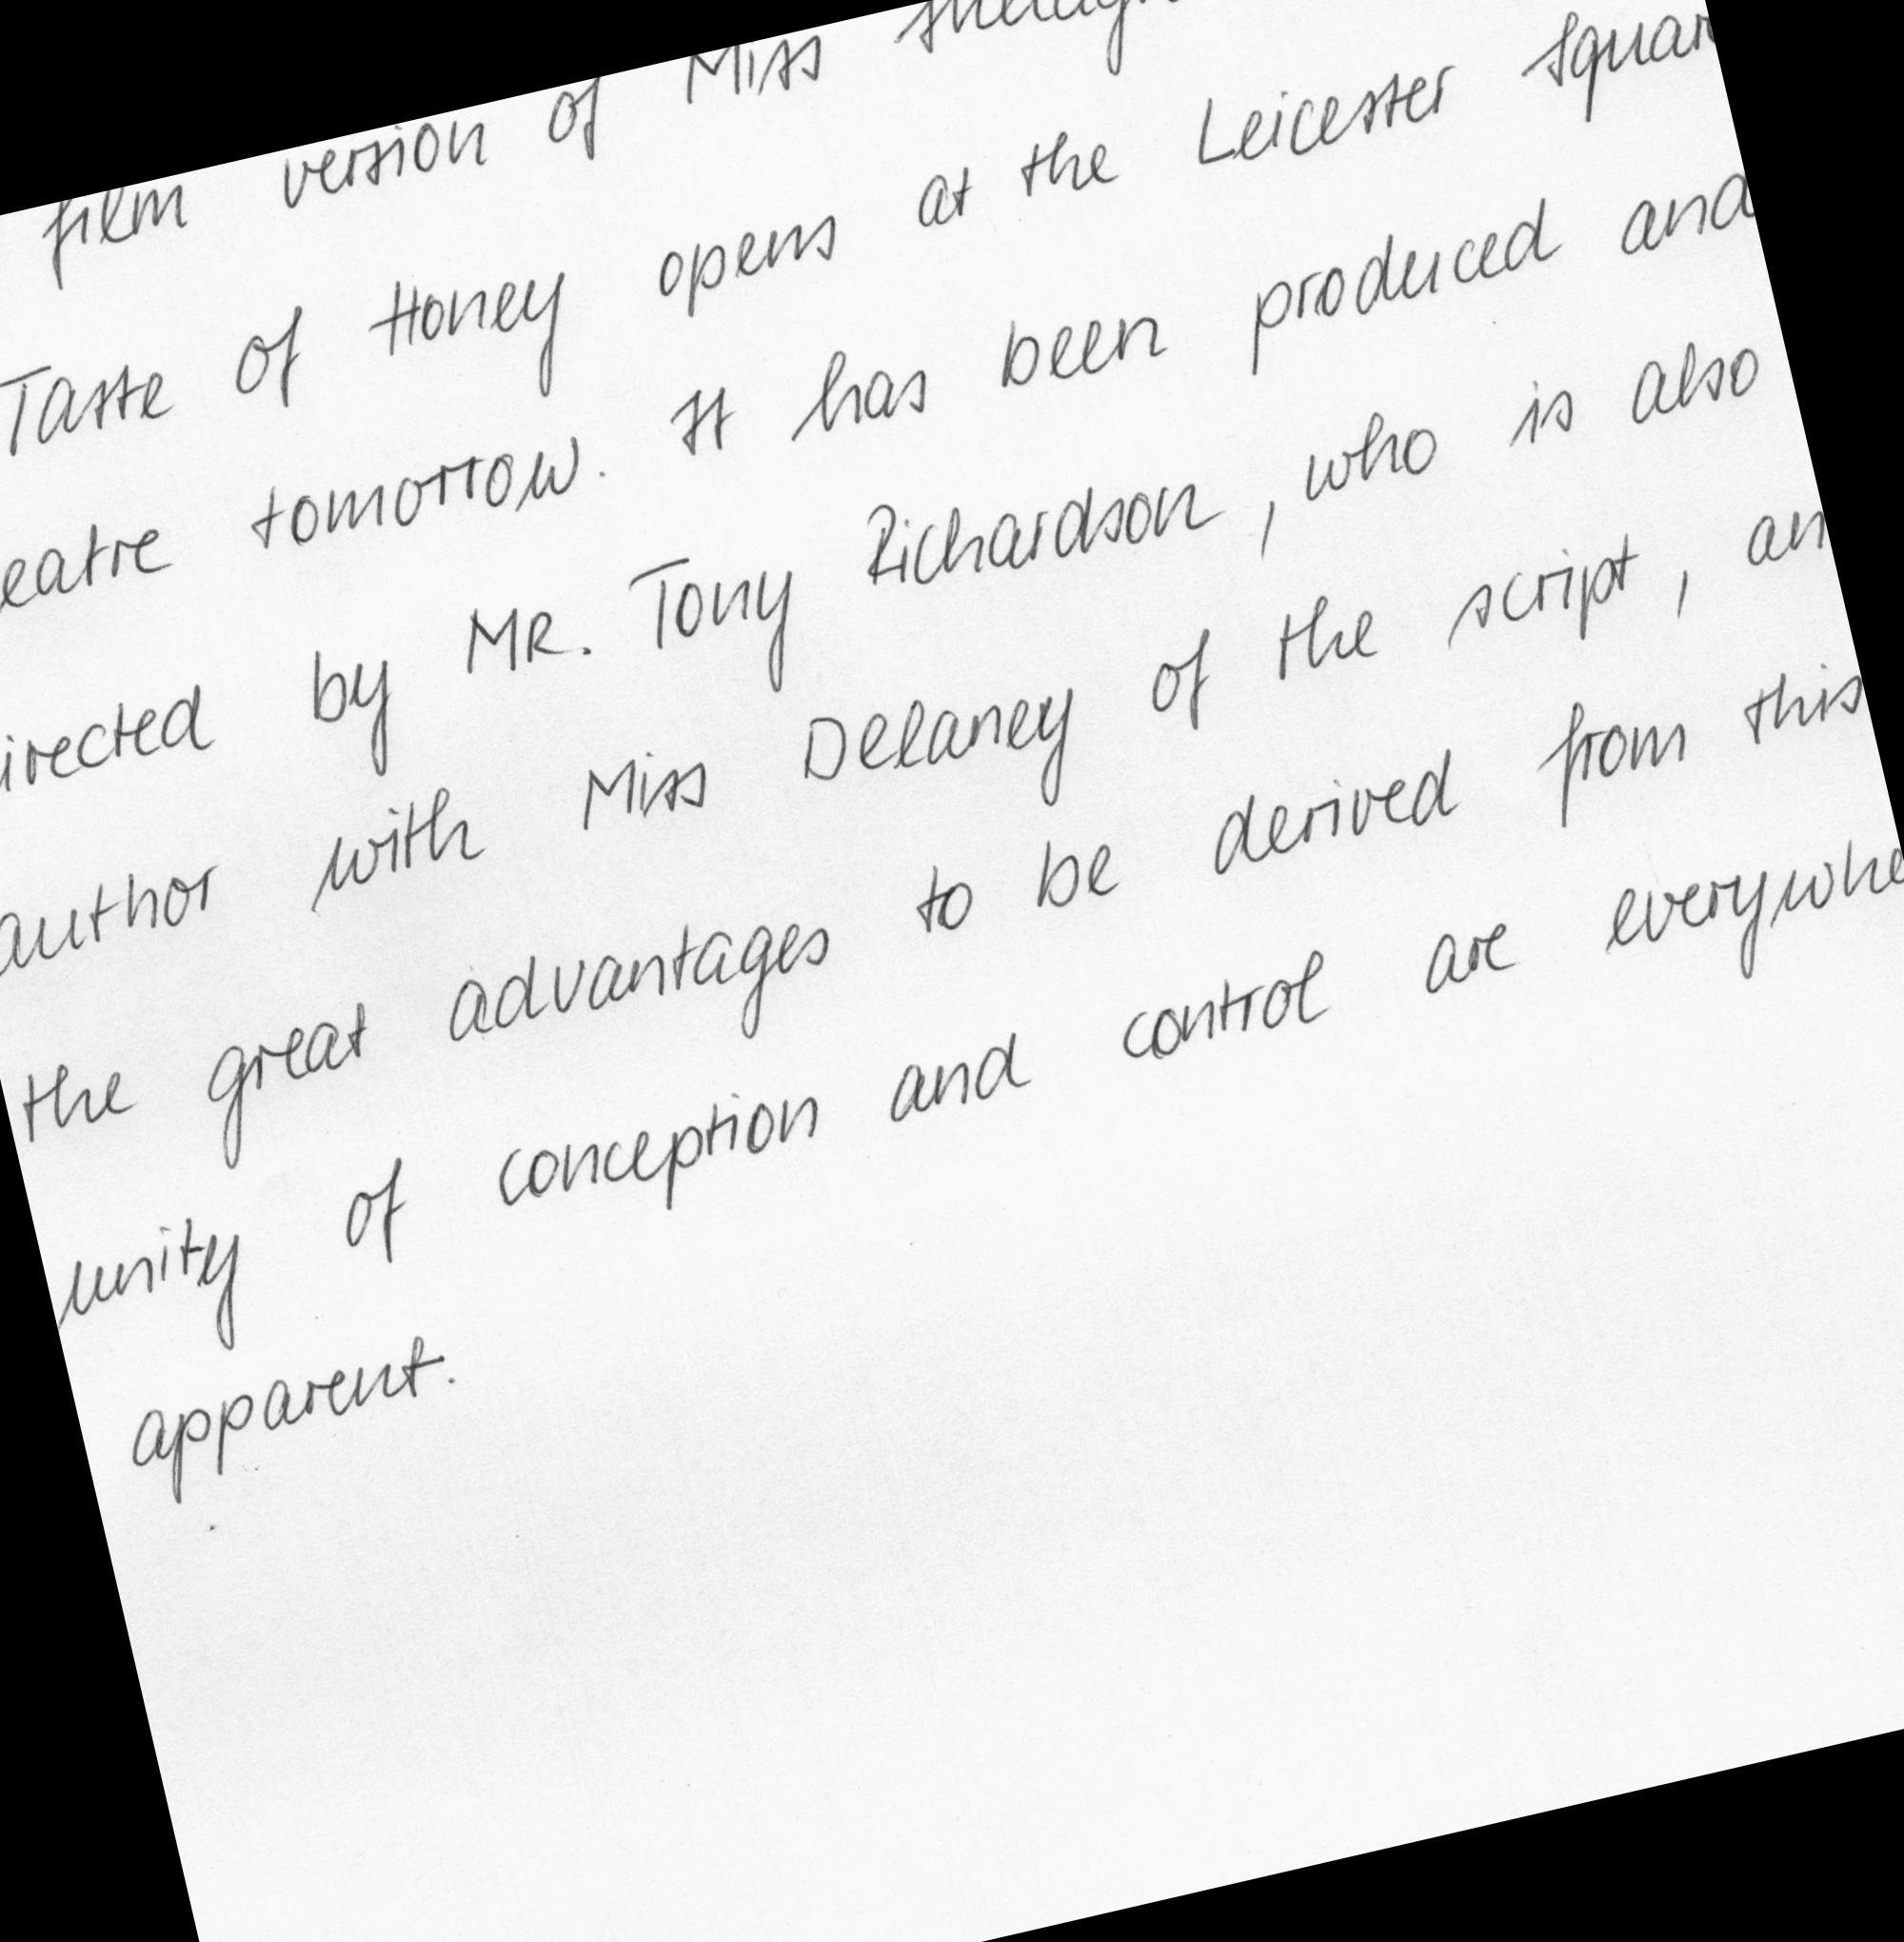 film version of Miss
Taste of Honey opens at the Leicester Squar
eatre tomorrow. It has been produced and
irected by MR. Tony Richardson, who is also
author with Miss Delaney of the script, an
the great advantages to be derived from this
unity of conception and control are everywhe
apparent.